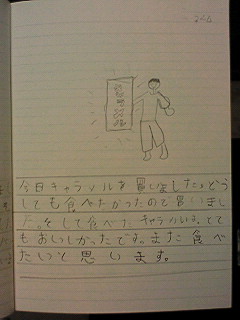 今日キャラメルを買いました。どう
しても食べたかったので買いまし
た。そして食べたキャラメルは、とて
もおいしかったです。また食べ
たいと思います。